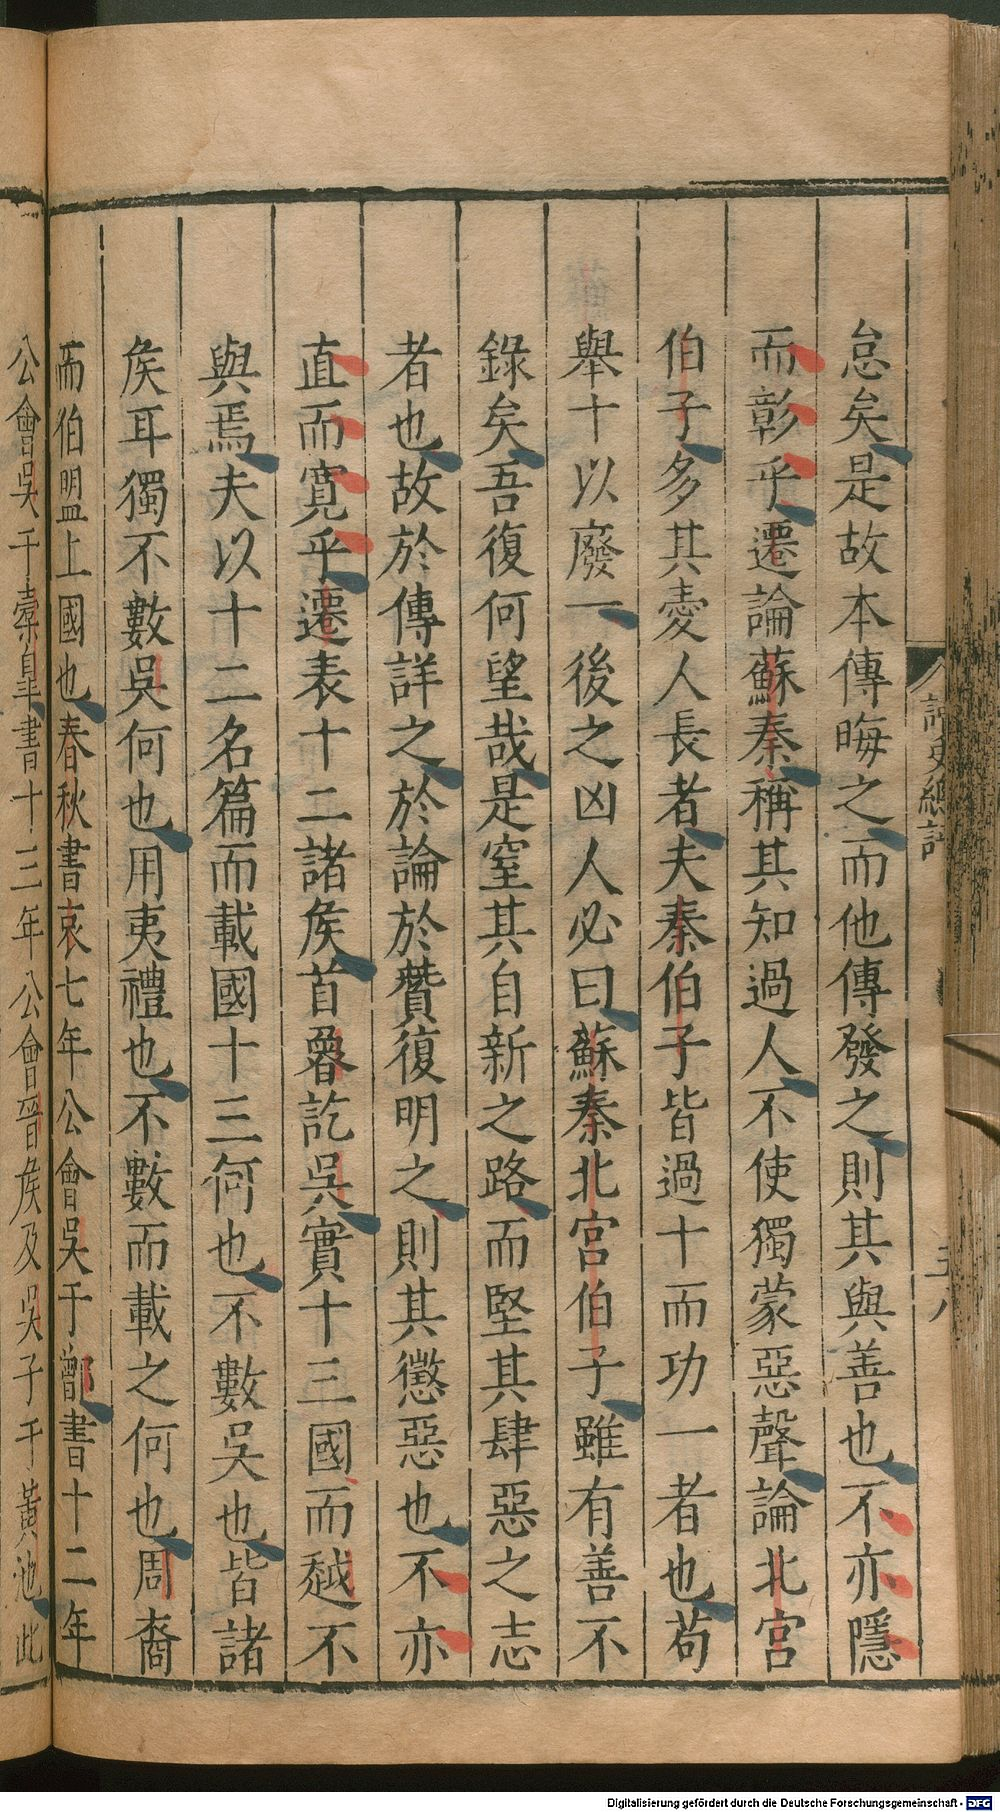 怠矣是故本傳晦之而他傳發之則其與善也不亦隱
而彰乎遷論蘇秦稱其知過人不使獨蒙惡聲論北宮
伯子多其愛人長者夫秦伯子皆過十而功一者也苟
舉十以廢一後之凶人必曰蘇秦北宮伯子雖有善不
錄矣吾復何望哉是窒其自新之路而堅其肆惡之志
者也故於傳詳之於論於贊復明之則其懲惡也不亦
直而寬乎遷表十二諸矦首魯訖吳實十三國而越不
與焉夫以十二名篇而載國十三何也不數吳也皆諸
矦耳獨不數吳何也用夷禮也不數而載之何也周裔
而伯盟上國也春秋書哀七年公會吳于鄫書十二年
公會吳于橐皐書十三年公會晉矦及吳子于黃池此
五八
Digitalisierung gefördert durch die Deutsche Forschungsgemeinschaft - DFG